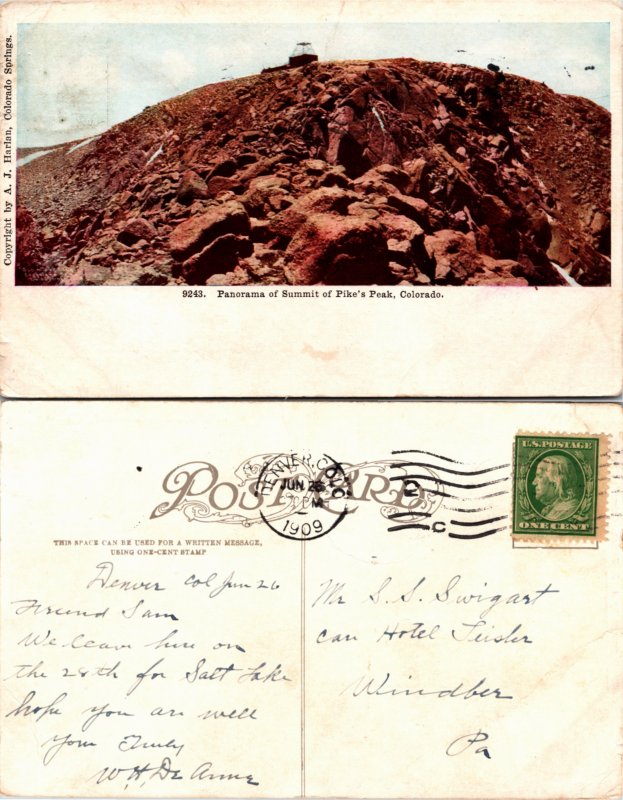 Copyright by A. J. Harlan, Colorado Springs.
9243. Panorama of Summit of Pike's Peak, Colorado.
POST CARD
DENVER, COLO.
JUN 26
M
1909
U.S. POSTAGE
ONE CENT
THIS SPACE CAN BE USED FOR A WRITTEN MESSAGE,
USING ONE-CENT STAMP
Denver Col Jun 26
Friend Sam
We leave here on
the 28th for Salt Lake
hope you are well
Your Truly
W. H. De Anne
Mr S. S. Swigart
car Hotel Leister
Windber
Pa